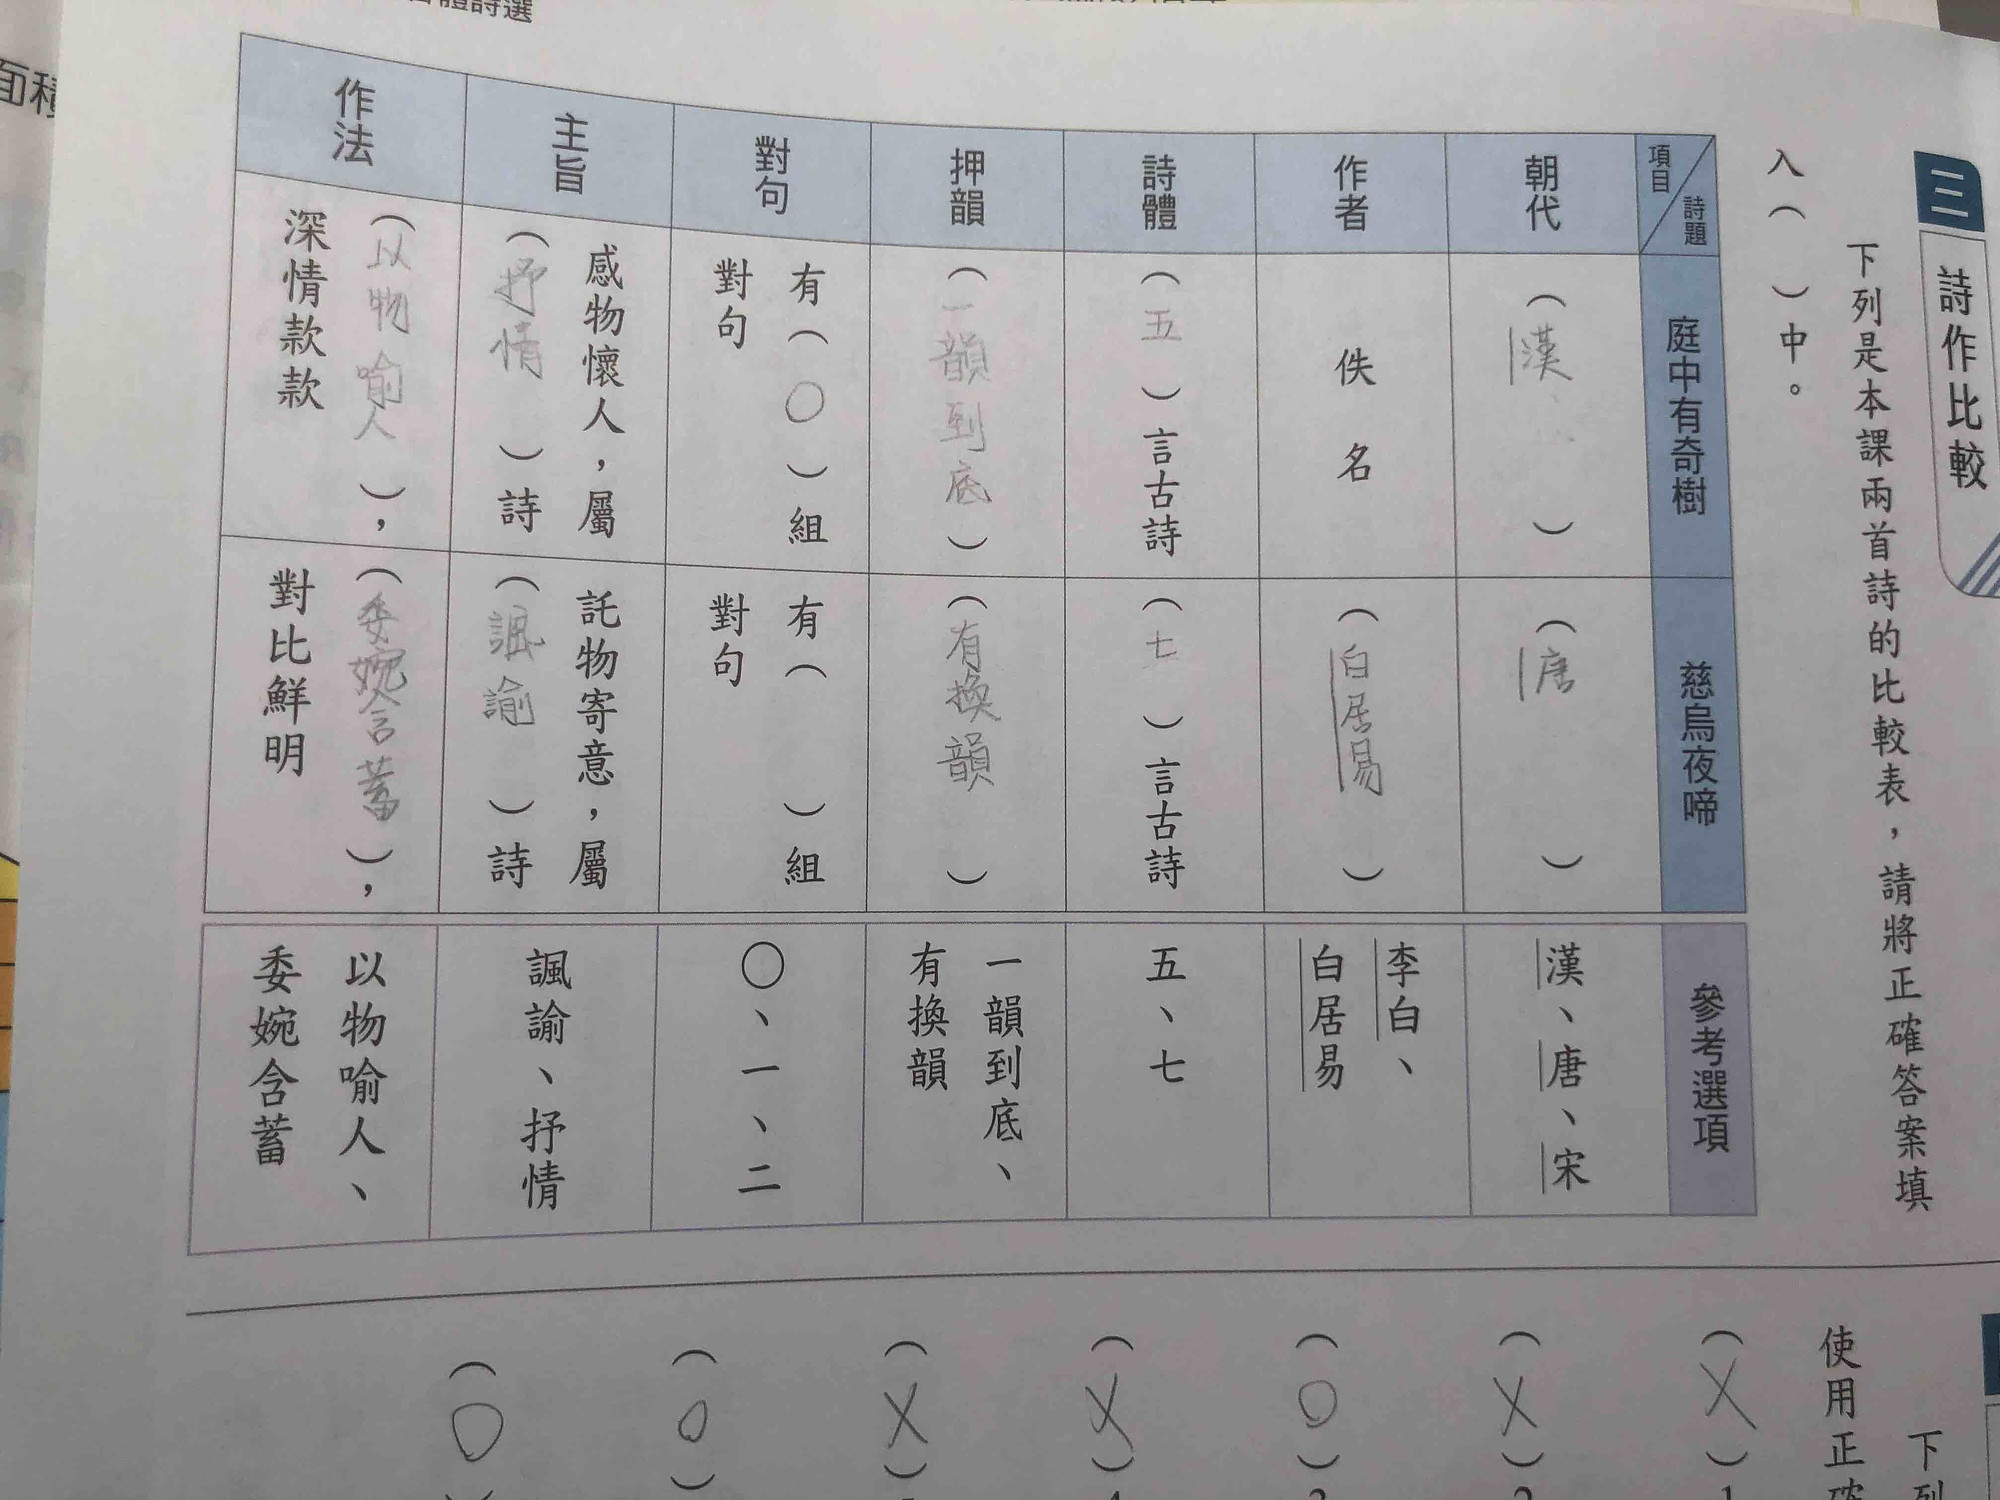 三 詩作比較
下列是本課兩首詩的比較表，請將正確答案填
入（ ）中。
詩題
項目
庭中有奇樹
慈烏夜啼
參考選項
朝代
（漢）
（唐）
漢、唐、宋
作者
佚名
（白居易）
李白、
白居易
詩體
（五）言古詩
（七）言古詩
五、七
押韻
（一韻到底）
（有換韻）
一韻到底、
有換韻
對句
有（○）組
對句
有（ ）組
對句
○、一、二
主旨
感物懷人，屬
（抒情）詩
託物寄意，屬
（諷諭）詩
諷諭、抒情
作法
（以物喻人），
深情款款
（委婉含蓄），
對比鮮明
以物喻人、
委婉含蓄
下列
使用正確
（X）1
（X）2
（O）3
（X）4
（X）
（O）
（O）
體詩選
面積